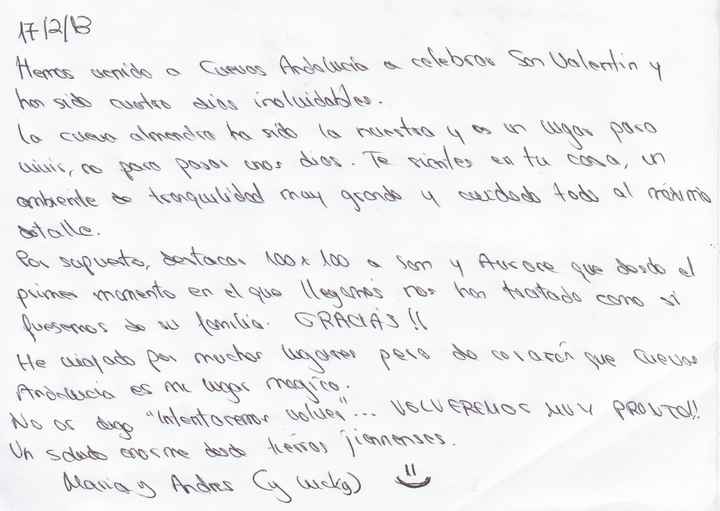 17/2/13
Hemos venido a Cuevas Andalucía a celebrar San Valentín y
han sido cuatro días inolvidables.
La cueva almendro ha sido la nuestra y es un lugar para
vivir, no para pasar unos días. Te sientes en tu casa, un
ambiente de tranquilidad muy grande y cuidado todo al máximo
detalle.
Por supuesto, destacar 100x100 a Sam y Aurore que desde el
primer momento en el que llegamos nos han tratado como si
fuesemos de su familia. GRACIAS!!
He viajado por muchos lugares pero de corazón que Cuevas
Andalucía es mi lugar mágico.
No os digo "intentaremos volver"... VOLVEREMOS MUY PRONTO!!
Un saludo enorme desde tierras jiennenses.
María y Andres (y Lucky)